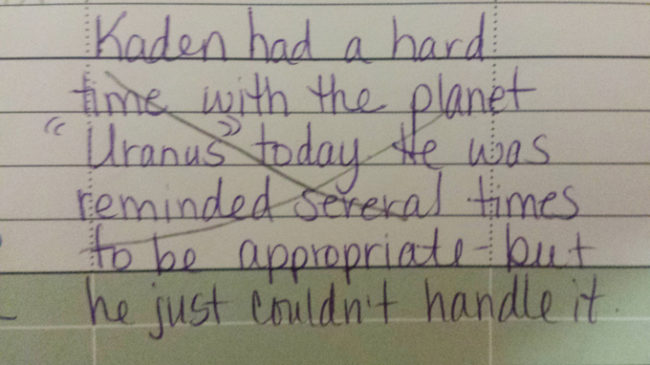 Kaden had a hard
time with the planet
"Uranus" today He was
reminded several times
to be appropriate - but
he just couldn't handle it.